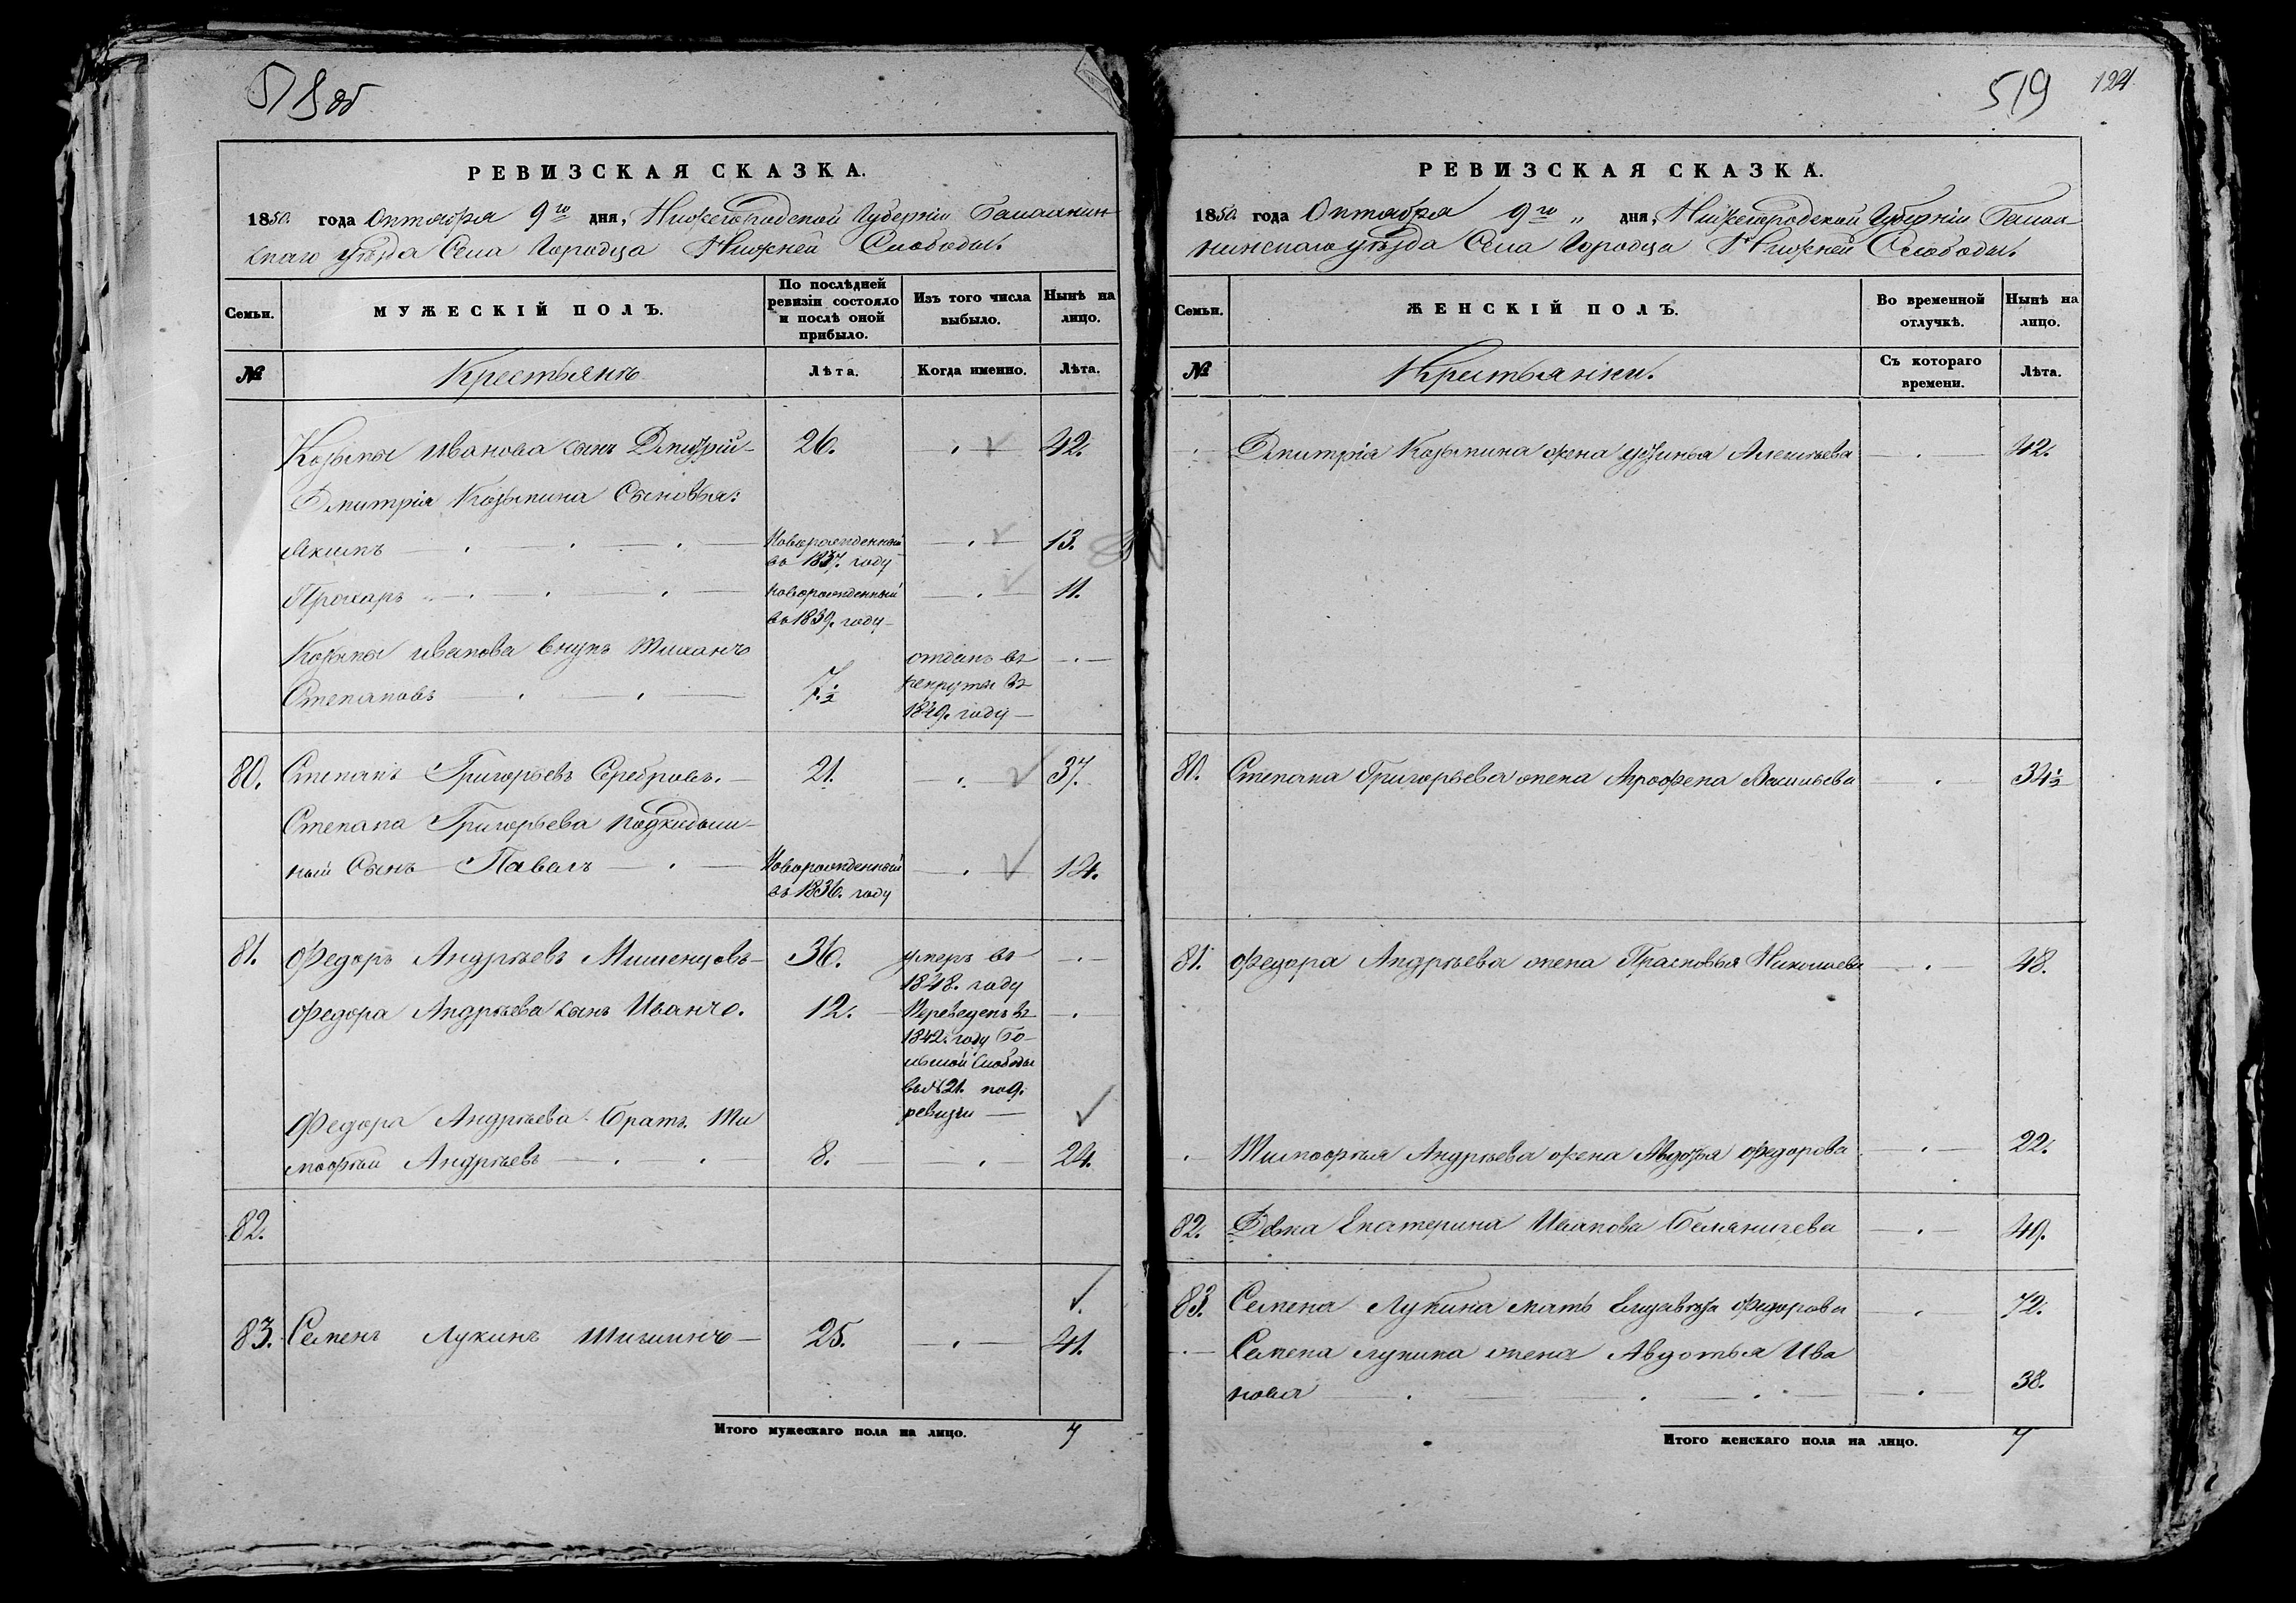 518 об
РЕВИЗСКАЯ СКАЗКА.
1850 года Октября 9го дня, Нижегородской Губерніи Балахнин
скаго уѣзда Села Городца Нижней Слободы.
Семьи.
МУЖЕСКІЙ ПОЛЪ.
По послѣдней
ревизіи состояло
и послѣ оной
прибыло.
Изъ того числа
выбыло.
Нынѣ на
лицо.
№
Крестьянъ
Лѣта.
Когда именно.
Лѣта.
Козьмы Иванова сынъ Дмитрій 26. 42.
Дмитрія Козьмина Сыновья:
Якимъ Новорожденный 13.
въ 1837. году
Прохаръ новорожденный 11.
въ 1839. году
Козьмы Иванова внукъ отданъ въ
Степановъ 7 1/2 рекруты въ
1849. году
80. Степанъ Григорьевъ Серебровъ. 21. 37.
Степана Григорьева подкидыш
ный Сынъ Павелъ Новорожденный 14.
въ 1836. году
81. Федоръ Андрѣевъ Мишенцовъ 36. умеръ въ
1848. году
Федора Андрѣева сынъ Иванъ 12. Переведенъ въ
1842. году Бо
льшой Слободы
въ № 21. по 9.
ревизіи
Федора Андрѣева Братъ Ти
мофѣй Андрѣевъ 8. 24.
82.
83. Семенъ Лукинъ Шишинъ 25. 41.
Итого мужескаго пола на лицо. 7
519
124
РЕВИЗСКАЯ СКАЗКА.
1850 года Октября 9го дня, Нижегородской Губерніи Балах
нинскаго уѣзда Села Городца Нижней Слободы.
Семьи.
ЖЕНСКІЙ ПОЛЪ.
Во временной
отлучкѣ.
Нынѣ на
лицо.
№
Крестьянки.
Съ котораго
времени.
Лѣта.
Дмитрія Козьмина жена Устинья Алексѣева 42.
80. Степана Григорьева жена Агрофена Васильева 34 1/2
81. Федора Андрѣева жена Прасковья Николаева 48.
Тимофѣя Андрѣева жена Авдотья Федорова 22.
82. Девка Екатерина Иванова 49.
83. Семена Лукина мать Елизавета Федорова 72.
Семена Лукина жена Авдотья Ива
нова 38.
Итого женскаго пола на лицо. 7